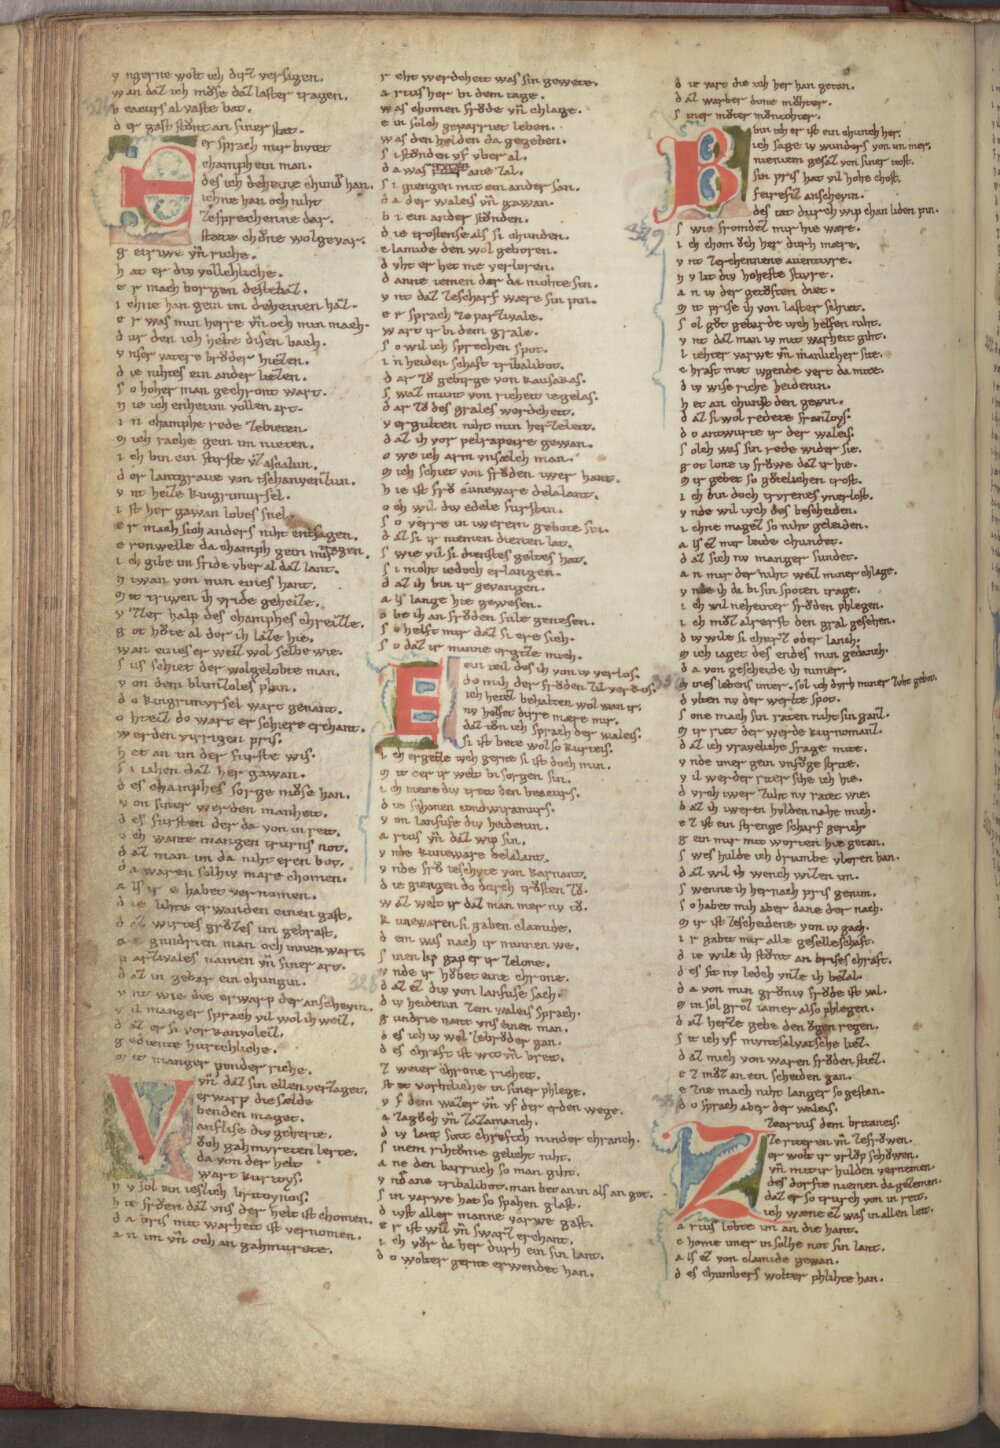 y ngerne wolt ich dirz versagen.
w an daz ich mǒse daz laster tragen.
b eacurs al vaste bat.
d er gast stǒnt an siner stat.
E er sprach mir bivtet
champh ein man.
des ich deheine chund han.
ichne han och niht
ze sprechenne dar.
starc chǒne wolgevar.
g etriwe vn̄ riche.
h at er div vollechliche.
e r mach borgen deste baz.
i chne han gein im deheinen haz.
e r was min herre vn̄ och min mach.
d vr den ich hebe disen bach.
v nser vatere brǒder hiezen.
d ie nihtes ein ander liezen.
s o hoher man gechront wart.
n ie ich enhetin vollen art.
i n champhe rede ze bieten.
m ich rache gein im nieten.
i ch bin ein fvrste vz ascalun.
d er lantgrave von tschanveilun.
v nt heize kingrimursel.
i st her gawan lobes snel.
e r mach sich anders niht entsagen.
e renwelle da champh gein mir tragen.
i ch gibe im fride vber al daz lant.
n iwan von min eines hant.
m it triwen ih vride geheize.
v zzer halp des champhes chreizze.
g ot hǒte al der ih laze hie.
w an eines er weiz wol selbe wie.
s vs schiet der wolgelobte man.
v on dem blimizoles plan.
d o kingrimvrsel wart genant.
o hteiz do wart er schiere erchant.
w erden virrigen pris.
h et an im der fvrste wis.
s i iahen daz her gawan.
d es champhes sorge mǒse han.
v on siner werden manheit.
d es fursten der da von in reit.
o ch wante mangen trvrns not.
d az man im da niht eren bot.
d a waren solhiv mare chomen.
a ls ir e habet vernumen.
d ie lihte erwanden einen gast.
d az wirtes grǒzes im gebrast.
a n gundrien man och innen wart.
p artzivales namen vn̄ siner art.
d az in gebar ein chungin.
v nt wie die erwarp der anschevin.
v il manger sprach vil wol ih weiz.
d az er si vor kanvoleiz.
g ediente hurtchliche.
m it manger poinder riche.
V vn̄ daz sin ellen vertzaget.
erwarp die selde
benden maget.
anflise div gtherte.
ǒch gahmvreten lerte.
da von der helt
wart kurtoys.
n v sol ein ieslich britoynois.
h it frǒen daz vns der helt ist chomen.
d a pris mit warheit ist vernomen.
a n im vn̄ och an gahmurete.
r eht werdcheit was sin gewete.
a rtus her bi dem tage.
w as chomen frǒde vn̄ chlage.
e in solch geparriet leben.
w as den helden da gegeben.
s i stǒnden vf vber al.
d a was truren ane zal.
s i giengen mit ein ander san.
d a der waleis vn̄ gawan.
b i ein ander stǒnden.
d ie trostense als si chunden.
c lamide den wol geboren.
d vht er het me verloren.
d anne iemen der da mohte sin.
v nt daz ze scharf wære sin pin.
e r sprach ze partzivale.
w art ir bi dem grale.
s o wil ich sprechen spot.
i n heiden schaft tribalibot.
d ar zǒ gebirge von kavkasas.
s waz munt von richeit ie gelas.
d ar zǒ des grales werdcheit.
v ergulten niht min herzeleit.
d az ih vor pelrapeire gewan.
o we ich arm vnsælch man.
m ich schiet von frǒden iwer hant.
h ie ist frǒ cuneware delalant.
o ch wil div edele furstin.
s o verre in iwerem gebote sin.
d az si ir niemen dienen lat.
s wie vil si dienstes geltes hat.
s i moht iedoch erlangen.
d az ih bin ir gevangen.
a ls lange hie gewesen.
o be ih an frǒden sule genesen.
s o helfet mir daz si ere sich.
s o daz ir minne ergetze mich.
E ein teil des ih von iv verlos.
do mich der frǒden zil verkos.
ich hetez behalten wol wan ir.
nv helfet dirre mære mir.
daz tǒn ich sprach der waleis.
si ist bete wol so kurteis.
i ch ergetze ivch gerne si ist doch min.
m it der ir welt bi sorgen sin.
i ch meine div treit den beacurs.
d ie schonen condwiramurs.
v on lanfuse div heidenin.
a rtus vn̄ daz wip sin.
v nde kuneware delalant.
v nde frǒ ieschvte von karnant.
d ie giengen do durch trǒsten zǒ.
w az welt ir daz man mer nv tǒ.
k unewaren si gaben clamide.
d em was nach ir minnen we.
s inen lip gap er ir zelone.
v nde ir hǒbet eine chrone.
d az ez div von lanfuse sach.
d iv heidenin zem waleis sprach.
g undrie nant vns einen man.
d es ich iv wol ze brǒder gan.
d es chraft ist wit vn̄ breit.
z weier chrone richeit.
st et vorhtliche in siner phlege.
v f dem wazer vn̄ vf der erden wege.
a zagǒch vn̄ zazamanch.
d iv lant sint chreftch ninder chranch.
s inem rihtǒme gelicht niht.
a ne den barruch so man giht.
v nd ane tribalibot. man bet an in als an got.
s in varwe hat so spahen glast.
d vst aller manne varwe gast.
e r ist wiz vn̄ swarz erchant.
i ch vǒr da her durh ein sin lant.
d o wolter gerne erwendet han.
d ie vart die ich her han getan.
d az warber done mohter.
s iner mǒter mǒmtohter.
B bin ich er ist ein chunich her.
ich sage iv wunders von im mer.
niemem gesaz von siner tiost.
sin pris hat vil hohe chost.
feirefiz anschevin.
des tat durch wip chan liden pin.
s wie fromdez mir hie wære.
i ch chom ǒch her durh mære.
v nt zerchennene aventivre.
n v lit div hoheste stivre.
a n iv der getǒften diet.
m it prise ih von laster schiet.
s ol gǒt gebarde ivch helfen niht.
v nt daz man iv mit warheit giht.
l iehter varwe vn̄ manlicher site.
c hraft mit iugende vert da mite.
d iv wise riche heidenin.
h et an chunst den gewin.
d az si wol redete franzoys.
d o antwurte ir der waleis.
s olch was sin rede wider sie.
g ot lone iv frǒwe daz ir hie.
m ir gebet so gǒtelichen trost.
i ch bin doch trvrenes vnerlost.
v nde wil ivch des bescheiden.
i chne magez so niht geleiden.
a ls ez mir leide chundet.
d az sich nv manger sundet.
a n mir der niht weiz miner chlage.
v nde ih da bi sin spoten trage.
i ch wil neheiner frǒden phlegen.
i ch mǒz alrerst den gral gesehen.
d iv wile si churz oder lanch.
m ich iaget des endes min gedanch.
d a von gescheide ih nimer.
m ines lebens imer. sol ich dvrh miner zuht gebot.
d vlten nv der werlte spot.
s one mach sin raten niht sin ganz.
m ir riet der werde kurnomanz.
d az ich vraveliche frage mite.
v nde imer gein vnfǒge strite.
v il werder riter sihe ich hie.
d vrch iwer zuht nv ratet wie.
d az ih iweren hvlden nahe mich.
e z ist ein strenge scharf gerich.
g ein mir mit worten hie getan.
s wes hulde ich drumbe vloren han.
d az wil ih wench wizen im.
s wenne ih hernach pris genim.
s o habet mih aber dane der nach.
m ir ist ze scheidene von iv gach.
i r gabet mir alle geselleschaft.
d ie wile ih stǒnt an prises chraft.
d es sit nv ledch vnze ih bezal.
d a von min grǒniv frǒde ist val.
m in sol grǒz iamer also phlegen.
d az herze gebe den ǒgen regen.
s it ich vf mvntsalvatsche liez.
d az mich von waren frǒden stiez.
e z mǒz an ein scheiden gan.
e zne mach niht langer so gestan.
d o sprach aber der waleis.
Z zeartus dem britaneis.
ze riteren vn̄ ze frǒwen.
er wolt ir vrlǒp schǒwen.
vn̄ mit ir hulden vernemen.
des dorfte niemen da gezemen.
daz er so trurch von in reit.
ich wæne ez was in allen leit.
a rtus lobte im an die hant.
c home imer in solhe not sin lant.
a ls ez von clamide gewan.
d es chumbers wolter phlihte han.